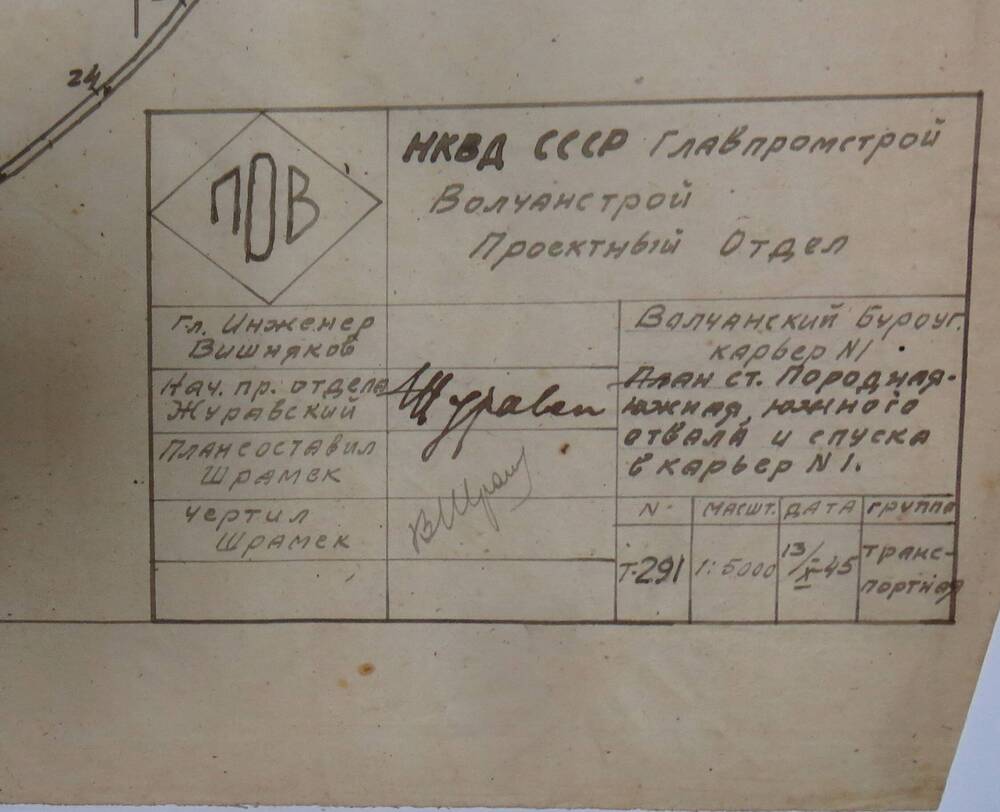 24
ПОВ
НКВД СССР Главпромстрой
Волчанстрой
Проектный Отдел
Гл. Инженер
Вишняков
Нач. пр. отдела
Журавский
План составил
Шрамек
Чертил
Шрамек
Волчанский Буроуг.
карьер N1.
План ст. Породная-
южная, южного
отвала и спуска
в карьер N1.
N
масшт.
дата
группа
Т-291
1:5000
13/X-45
транс-
портная